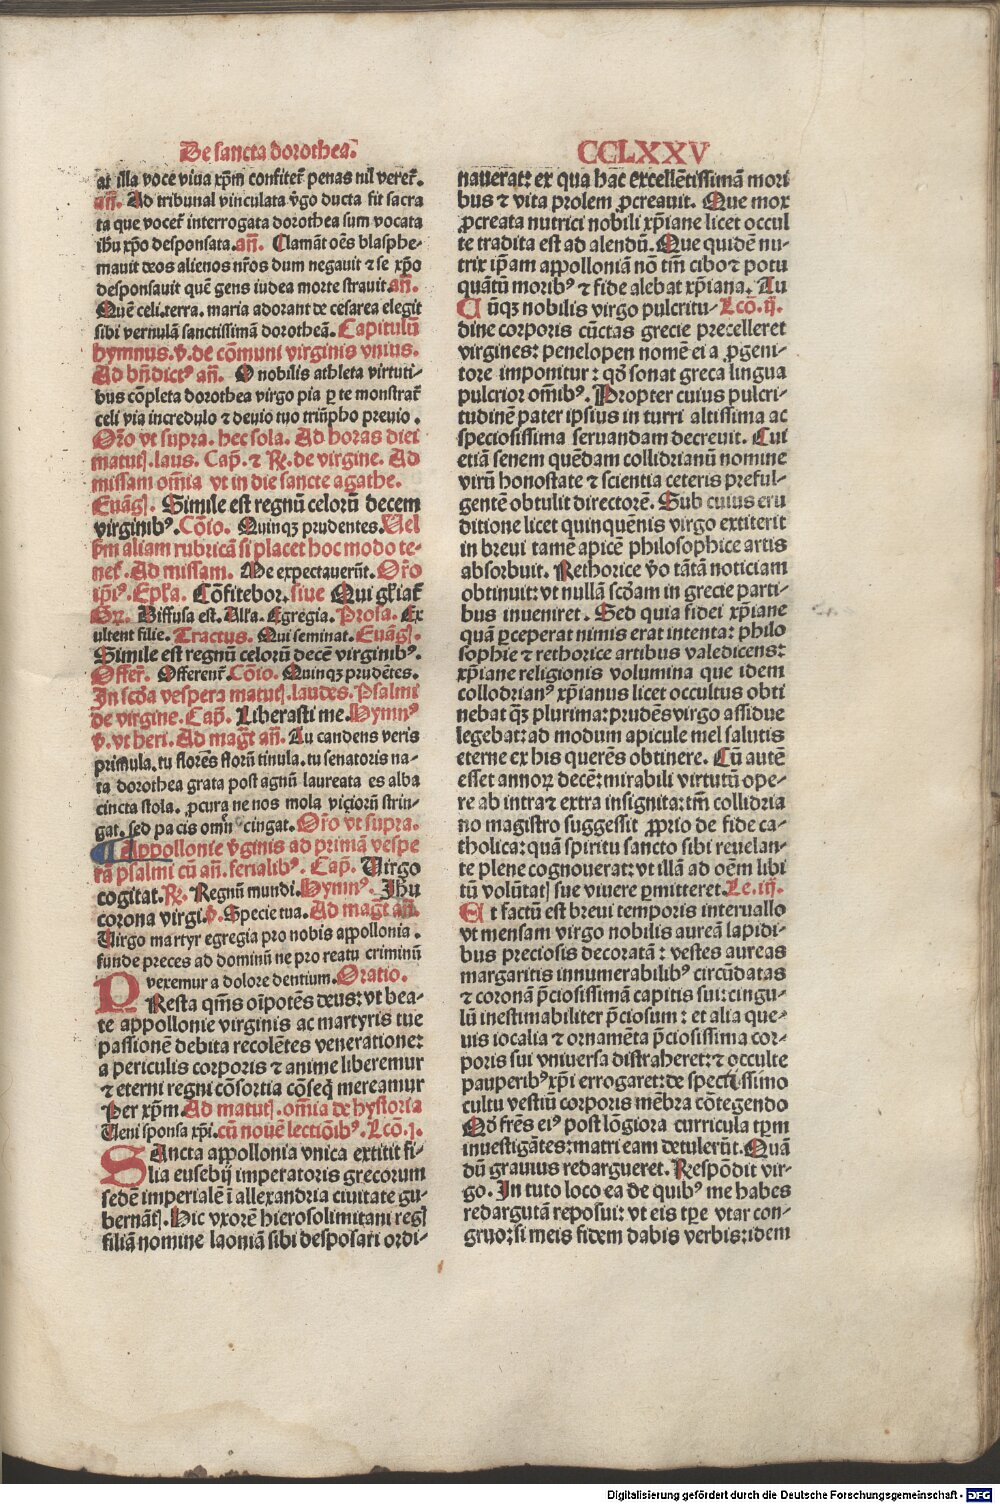 De sancta dorothea.
at illa voce viua xp̄m confitet᷒ penas nil veret᷒.
an̄. Ad tribunal vinculata v̓go ducta fit sacra
ta que vocet᷒ interrogata dorothea sum vocata
ihū xp̄o desponsata. an̄. Clamāt oēs blasphe-
mauit deos alienos nr̄os dum negauit ⁊ se xp̄o
desponsauit quē gens iudea morte strauit. an̄.
Quē celi. terra. maria adorant de cesarea elegit
sibi vernulā sanctissimā dorotheā. Capitulū
hymnus. v̓. de cōmuni virginis vnius.
Ad bn̄dictꝰ an̄. O nobilis athleta virtuti-
bus cōpleta dorothea virgo pia ꝑ te monstrat᷒
celi via incredulo ⁊ deuio tuo triūpho preuio.
Or̄o vt supra. hec sola. Ad horas diei
matut̄. laus. Cap̄. ⁊ R̄. de virgine. Ad
missam om̄ia vt in die sancte agathe.
Euāḡ. Simile est regnū celorū decem
virginibꝰ. Cōio. Quinqꝫ prudentes. Uel
ẜm aliam rubricā si placet hoc modo te-
net᷒. Ad missam. Me expectauerūt. Or̄o
ip̄iꝰ. Ep̄ła. Cōfitebor. siue Qui gl̓iat᷒
Gr̄. Diffusa est. All̓a. Egregia. Prosa. Ex
ultent filie. Tractus. Qui seminat. Euāḡ.
Simile est regnū celorū decē virginibꝰ.
Offer᷒. Offerent᷒. Cōio. Quinqꝫ prudētes.
In scd̄a vespera matut̄. laudes. Psalmi
de virgine. Cap̄. Liberasti me. Hymnꝰ
v̓. vt heri. Ad mag̓t an̄. Tu candens veris
primula. tu flores florū tinula. tu senatoris na-
ta dorothea grata post agnū laureata es alba
cincta stola. ꝓcura ne nos mola viciorū strin-
gat. sed pacis omn̄ cingat. Or̄o vt supra.
¶ Appollonie v̓ginis ad primā vespe
rā psalmi cū an̄. ferialibꝰ. Cap̄. Uirgo
cogitat. R̄. Regnū mundi. Hymnꝰ. Jhū
corona virgi. v̓. Specie tua. Ad mag̓t an̄.
Uirgo martyr egregia pro nobis appollonia.
funde preces ad dominū ne pro reatu criminū
vexemur a dolore dentium. Oratio.
PResta qm̄s oīpotēs deus: vt bea-
te appollonie virginis ac martyris tue
passionē debita recolētes veneratione:
a periculis corporis ⁊ anime liberemur
⁊ eterni regni cōsortia cōseq̄ mereamur
Per xp̄m. Ad matut̄. om̄ia de hystoria
Ueni sponsa xp̄i. cū nouē lectiōibꝰ. Lcō. j.
SAncta appollonia vnica extitit fi-
lia eusebij imperatoris grecorum
sedē imperialē ī allexandria ciuitate gu-
bernāt̄. Hic vxorē hierosolimitani reḡ
filiā nomine laoniā sibi desposari ordi-
CCLXXV
nauerat: ex qua hac excellētissimā mori
bus ⁊ vita prolem ꝓcreauit. Que mox
ꝓcreata nutrici nobili xp̄iane licet occul
te tradita est ad alendū. Que quidē nu-
trix ip̄am appolloniā nō tm̄ cibo ⁊ potu
quātū moribꝰ ⁊ fide alebat xp̄iana. Tu
CUn̄qꝫ nobilis virgo pulcritu- Lcō. ij.
dine corporis cūctas grecie precelleret
virgines: penelopen nomē ei a ꝓgeni-
tore imponitur: qd̓ sonat greca lingua
pulcrior om̄ibꝰ. Propter cuius pulcri-
tudinē pater ipsius in turri altissima ac
speciosissima seruandam decreuit. Cui
etiā senem quēdam collidrianū nomine
virū honostate ⁊ scientia ceteris preful-
gentē obtulit directorē. Sub cuius eru
ditione licet quinquēnis virgo extiterit
in breui tamē apicē philosophice artis
absorbuit. Rethorice v̓o tātā noticiam
obtinuit: vt nullā scd̄am in grecie parti-
bus inueniret. Sed quia fidei xp̄iane
quā ꝑceperat nimis erat intenta: philo
sophie ⁊ rethorice artibus valedicens:
xp̄iane religionis volumina que idem
collodrianꝰ xp̄ianus licet occultus obti
nebat qꝫ plurima: prudēs virgo assidue
legebat: ad modum apicule mel salutis
eterne ex his querēs obtinere. Cū autē
esset annoꝝ decē: mirabili virtutū ope-
re ab intra ⁊ extra insignita: tm̄ collidria
no magistro suggessit ꝓprio de fide ca-
tholica: quā spiritu sancto sibi reuelan-
te plene cognouerat: vt illā ad oēm libi
tū volūtat̄ sue viuere ꝑmitteret. Le. iij.
Et factū est breui temporis interuallo
vt mensam virgo nobilis aureā lapidi-
bus preciosis decoratā: vestes aureas
margaritis innumerabilibꝰ circūdatas
⁊ coronā p̄ciosissimā capitis sui: cingu-
lū inestimabiliter p̄ciosum: et alia que-
uis iocalia ⁊ ornamēta p̄ciosissima cor-
poris sui vniuersa distraheret: ⁊ occulte
pauperibꝰ xp̄i errogaret: de spectissimo
cultu vestiū corporis mēbra cōtegendo
Qd̓ fr̄es eiꝰ post lōgiora curricula tp̄m
inuestigātes: matri eam detulerūt. Quā
dū grauius redargueret. Respōdit vir-
go. In tuto loco ea de quibꝰ me habes
redargutā reposui: vt eis tp̄e vtar con-
gruo: si meis fidem dabis verbis: idem
Digitalisierung gefördert durch die Deutsche Forschungsgemeinschaft - DFG